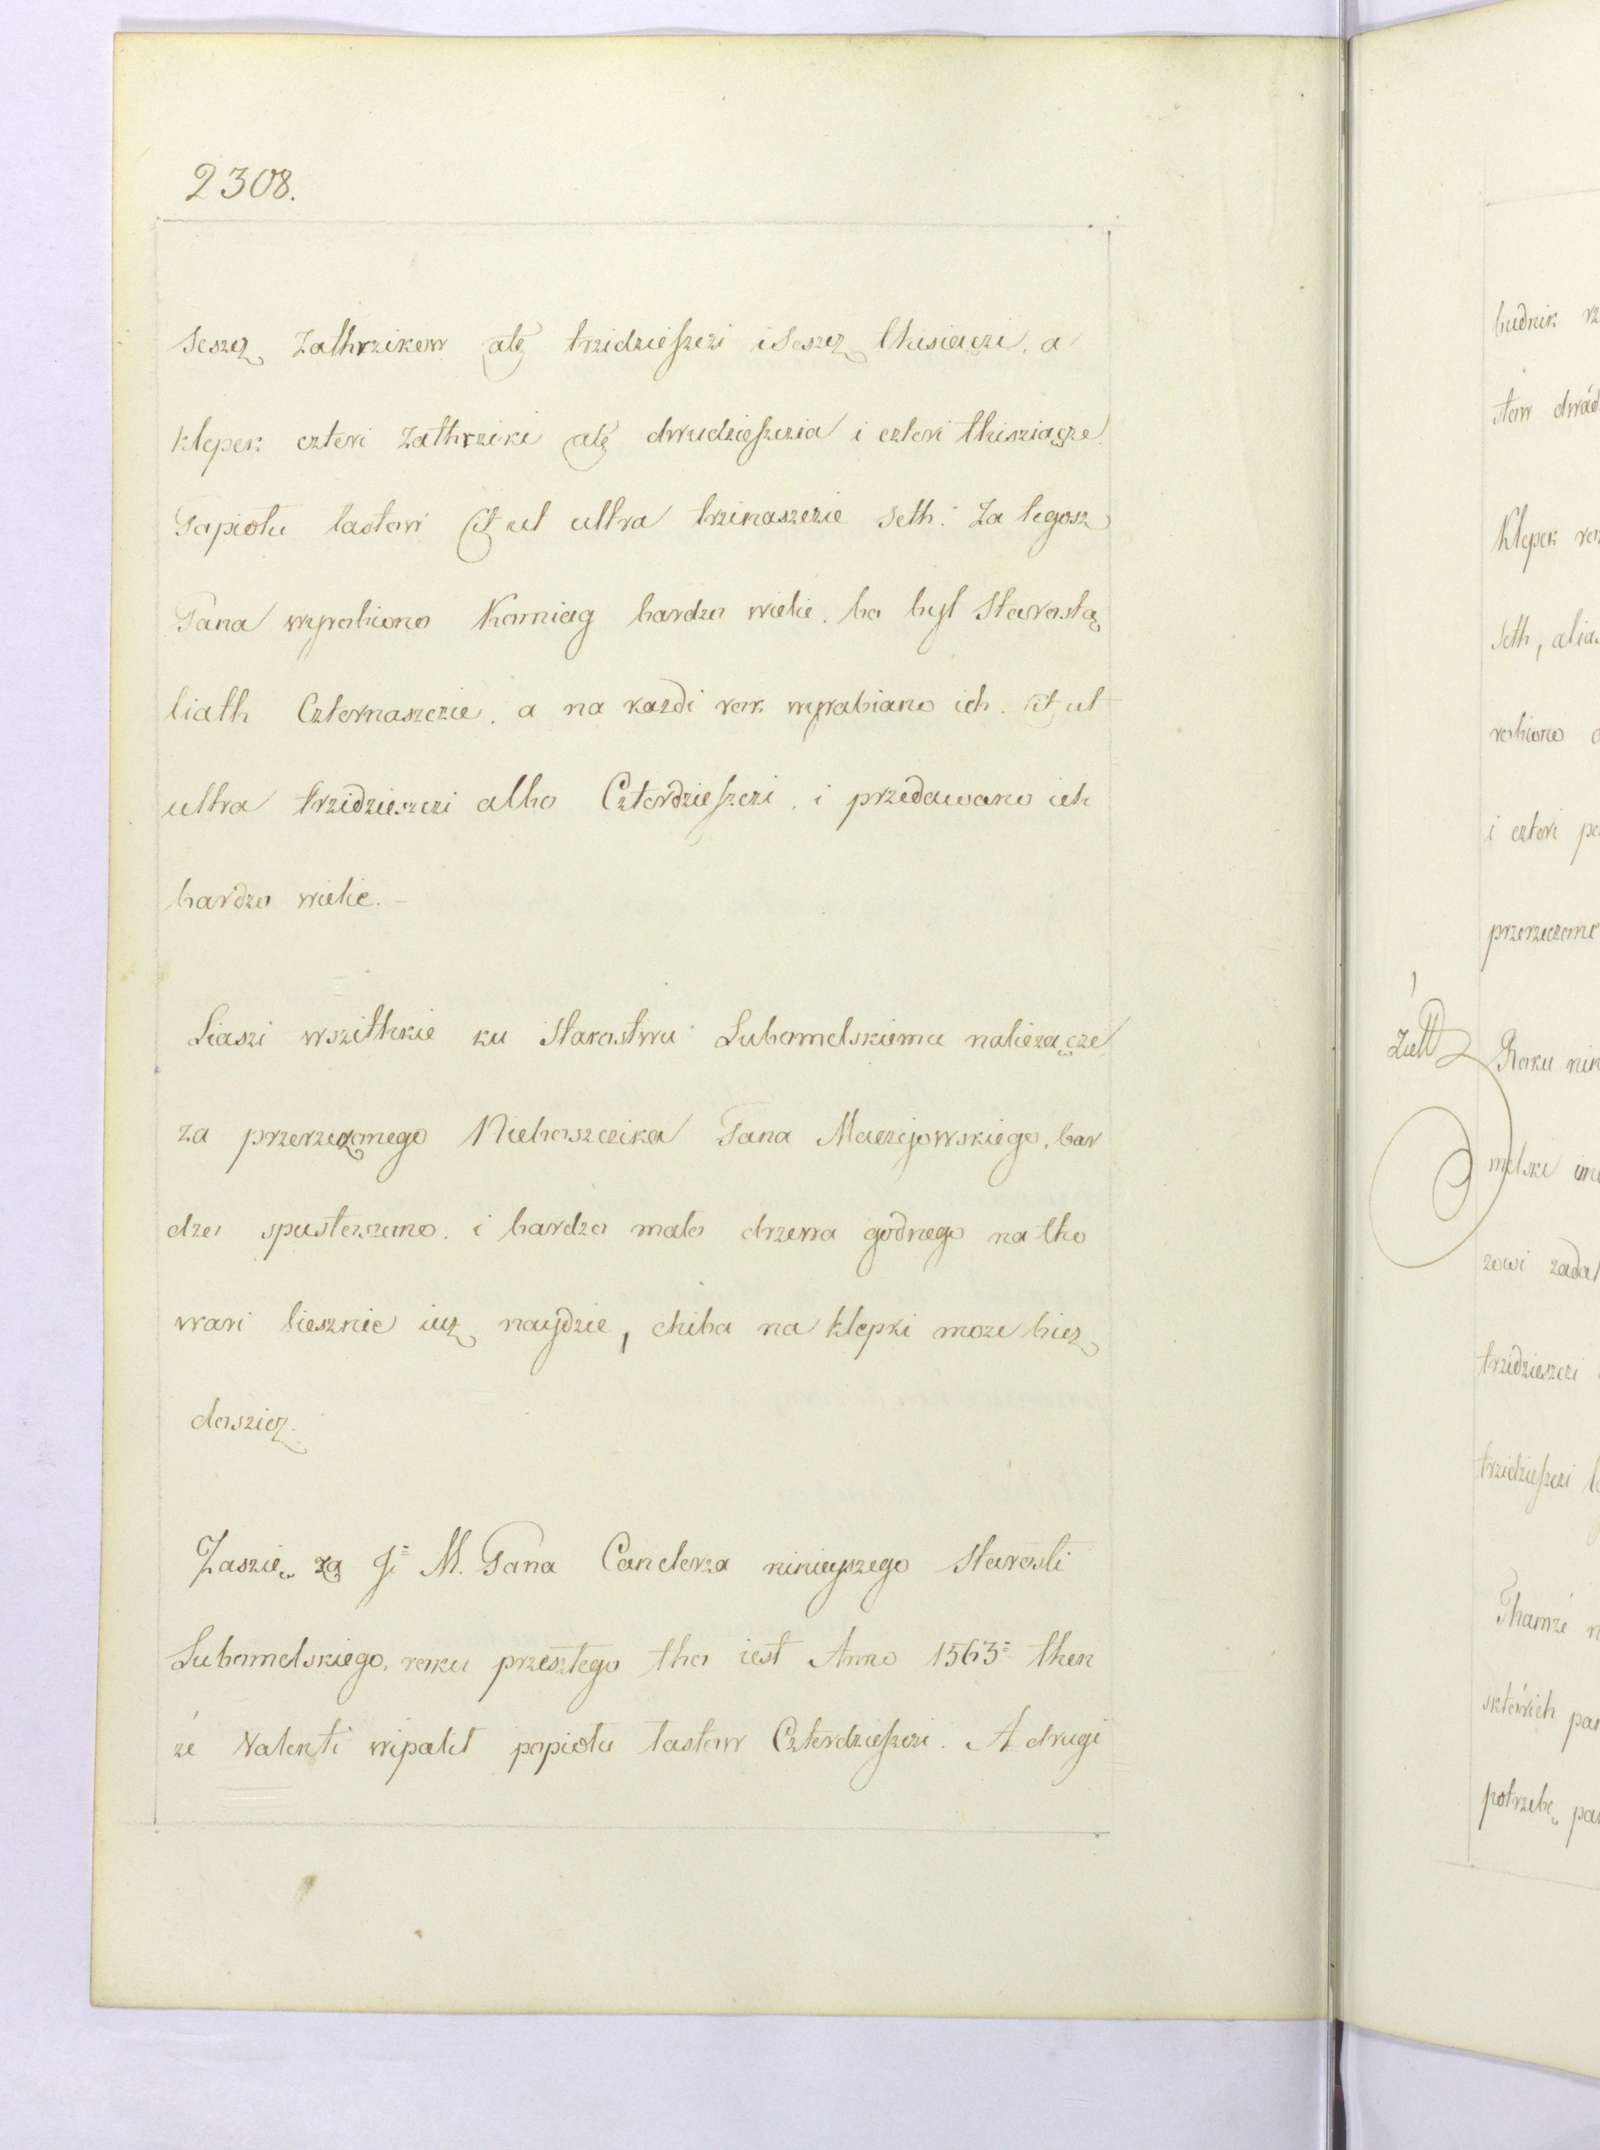 2308.
Seszcz Zathrzikow alę trzidzieſzczi i Seszcz thisięczi, a
klepek czteri Zathrziki alę dwudzieſzczia i czteri thisziącze.
Popiołu lastow et ut ultra trzinaszczie seth. Za tegosz
Pana wyrobiono Komiag bardzo wielie. bo był Starostą
liath Czternaszczie. a na kazdi rok wyrabiano ich. et ut
ultra trzidzieszczi albo Czterdzieſzczi. i przedawano ich
bardzo wielie.
Liaszi wszithkie ku starostwu Lubomelskiemu należącze
za przerzeczonego Nieboszczika Pana Maczejowskiego, bar
dzo spustoszono. i bardzo mało drzewa godnego na tho
wari liesznie iuz naydzie, chiba na klepki moze biez
dosziez.
Zaszię za Ji M. Pana Canclerza ninieyszego starosti
Lubomelskiego, roku przeszłego tho iest Anno 1563 then
że Walenti wipalił popiołu łastow Czterdzieſzczi. A drugi
budnik
stow
Klepek
Seth, alias
robiono
i czteri
przerzeczone
Roku
melski
zowi zadał
trzidzieszczi
trzidzieſzczi
Thamże
potrzebę